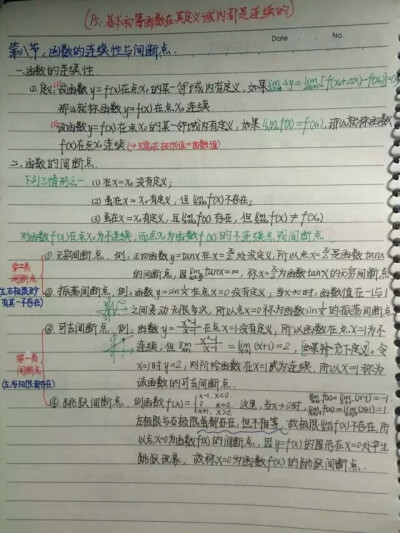 (Ps: 基本初等函数在其定义域内都是连续的)
Date . . No.
第八节、函数的连续性与间断点.
一、函数的连续性
(1) 定义: 设函数 y=f(x) 在点 x₀ 的某一邻域内有定义, 如果 lim Δy = lim [f(x₀+Δx)-f(x₀)]=0
那么就称函数 y=f(x) 在点 x₀ 连续
设函数 y=f(x) 在点 x₀ 的某一邻域内有定义, 如果 lim f(x)=f(x₀), 那么就称函数
f(x) 在点 x₀ 连续 极限值=函数值)
二、函数的间断点.
下列三情形之一 (1) 在 x=x₀ 没有定义;
(2) 虽在 x=x₀ 有定义, 但 lim f(x) 不存在;
(3) 虽在 x=x₀ 有定义, 且 lim f(x) 存在, 但 lim f(x) ≠ f(x₀)
则函数 f(x) 在点 x₀ 为不连续, 而点 x₀ 为函数 f(x) 的不连续点或间断点.
第二类间断点
(左右极限至少有其一不存在)
① 无穷间断点. 例: 正切函数 y=tanx 在 x=π/2 处没有定义, 所以点 x=π/2 是函数 tanx
的间断点, 因 lim tanx=∞, 称 x=π/2 为函数 tanx 的无穷间断点
② 振荡间断点. 例: 函数 y=sin 1/x 在点 x=0 没有定义, 当 x→0 时, 函数值在 -1 与 1
之间变动无限多次, 所以点 x=0 称为函数 sin 1/x 的振荡间断点
第一类间断点
(左右极限都存在)
③ 可去间断点. 例: 函数 y=(x²-1)/(x-1) 在点 x=1 没有定义, 所以函数在点 x=1 为不
连续, 但 lim (x²-1)/(x-1) = lim (x+1)=2, 如果补充定义: 令
x=1 时 y=2, 则所给函数在 x=1 成为连续, 所以 x=1 称为
该函数的可去间断点.
④ 跳跃间断点. 例: 函数 f(x)= { x-1, x<0. 0, x=0. x+1, x>0. 这里, 当 x→0 时, lim f(x)=lim (x-1)=-1 lim f(x)=lim (x+1)=1
左极限与右极限虽都存在, 但不相等, 故极限 lim f(x) 不存在, 所
以点 x=0 为函数 f(x) 的间断点, 因 y=f(x) 的图形在 x=0 处产生
跳跃现象, 故称 x=0 为函数 f(x) 的跳跃间断点.